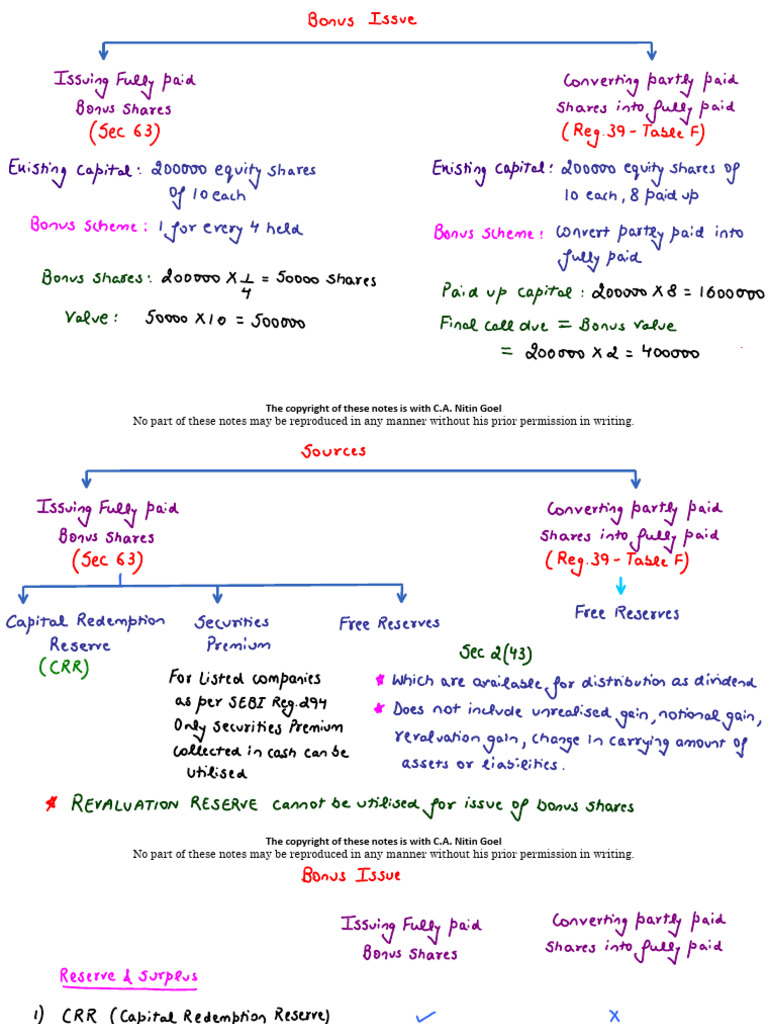 Bonus Issue
Issuing Fully paid
Bonus Shares
(Sec 63)
Existing Capital: 200000 equity shares
of 10 each
Bonus Scheme: 1 for every 4 held
Bonus Shares: 200000 X 1/4 = 50000 shares
Value: 50000 X 10 = 500000
Converting partly paid
Shares into fully paid
(Reg.39 - Table F)
Existing Capital: 200000 equity shares of
10 each, 8 paid up
Bonus Scheme: Convert partly paid into
fully paid
Paid up capital: 200000 X 8 = 1600000
Final call due = Bonus value
= 200000 X 2 = 400000
The copyright of these notes is with C.A. Nitin Goel
No part of these notes may be reproduced in any manner without his prior permission in writing.
Sources
Issuing Fully paid
Bonus Shares
(Sec 63)
Converting partly paid
Shares into fully paid
(Reg.39 - Table F)
Capital Redemption
Reserve
(CRR)
Securities
Premium
For Listed companies
as per SEBI Reg.294
Only Securities Premium
collected in cash can be
utilised
Free Reserves
Free Reserves
Sec 2(43)
* Which are available for distribution as dividend
* Does not include unrealised gain, notional gain,
revaluation gain, change in carrying amount of
assets or liabilities.
* REVALUATION RESERVE cannot be utilised for issue of bonus shares
The copyright of these notes is with C.A. Nitin Goel
No part of these notes may be reproduced in any manner without his prior permission in writing.
Bonus Issue
Issuing Fully paid
Bonus Shares
Converting partly paid
Shares into fully paid
Reserve & Surplus
1) CRR (Capital Redemption Reserve) ✓ X